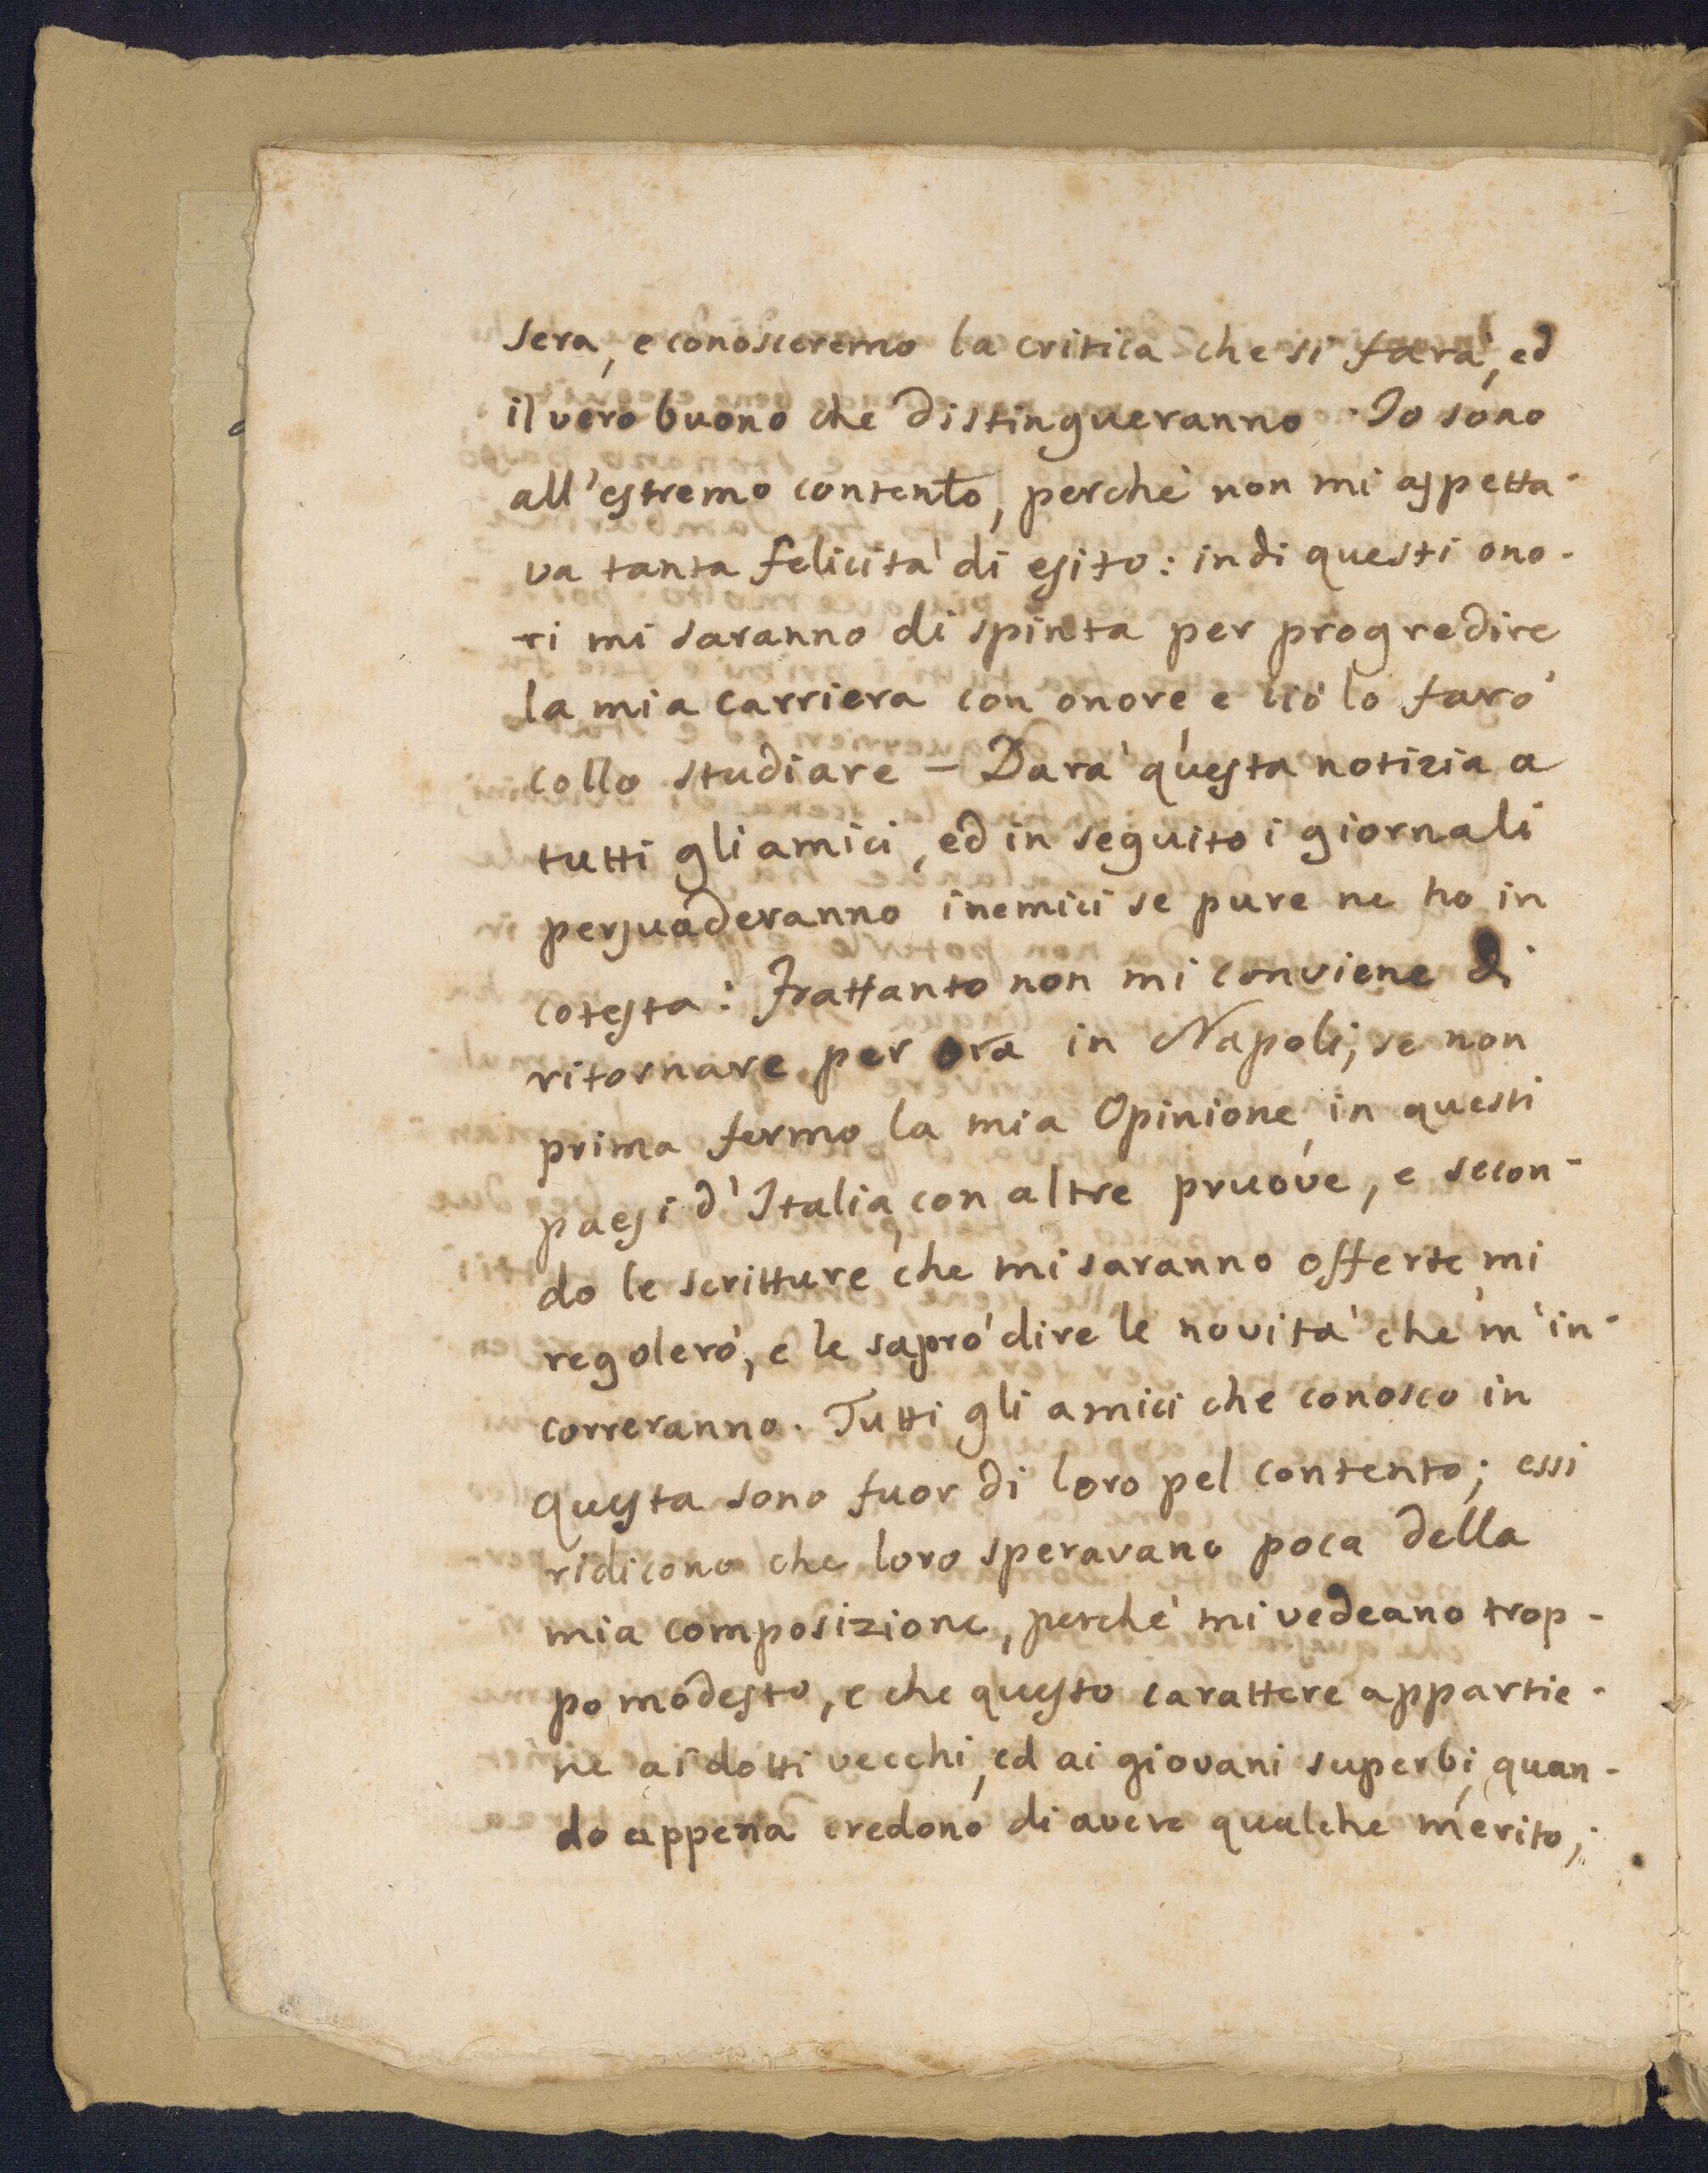 sera, e conosceremo la critica che si farà, ed
il vero buono che distingueranno. Io sono
all'estremo contento, perchè non mi aspetta-
va tanta felicità di esito: indi questi ono-
ri mi saranno di spinta per progredire
la mia carriera con onore, e ciò lo farò
collo studiare – Darà questa notizia a
tutti gli amici, ed in seguito i giornali
persuaderanno i nemici se pure ne ho in
cotesta: Frattanto non mi conviene di
ritornare per ora in Napoli, se non
prima fermo la mia Opinione, in questi
paesi d'Italia, con altre pruove, e secon-
do le scritture che mi saranno offerte, mi
regolerò, e le saprò dire le novità che m'in-
correranno. Tutti gli amici che conosco in
questa sono fuor di loro pel contento; essi
ridicono che loro speravano poca della
mia composizione, perchè mi vedeano trop-
po modesto, e che questo carattere appartie-
ne ai dotti vecchi, ed ai giovani superbi, quan-
do appena credono di avere qualche merito;